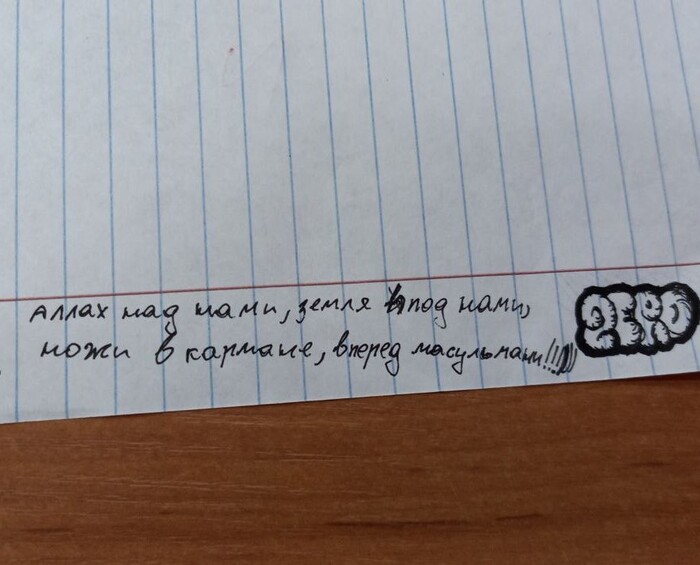 Аллах над нами, земля под нами,
ножи в кармане, вперед масульмани!!!)))
ZERO